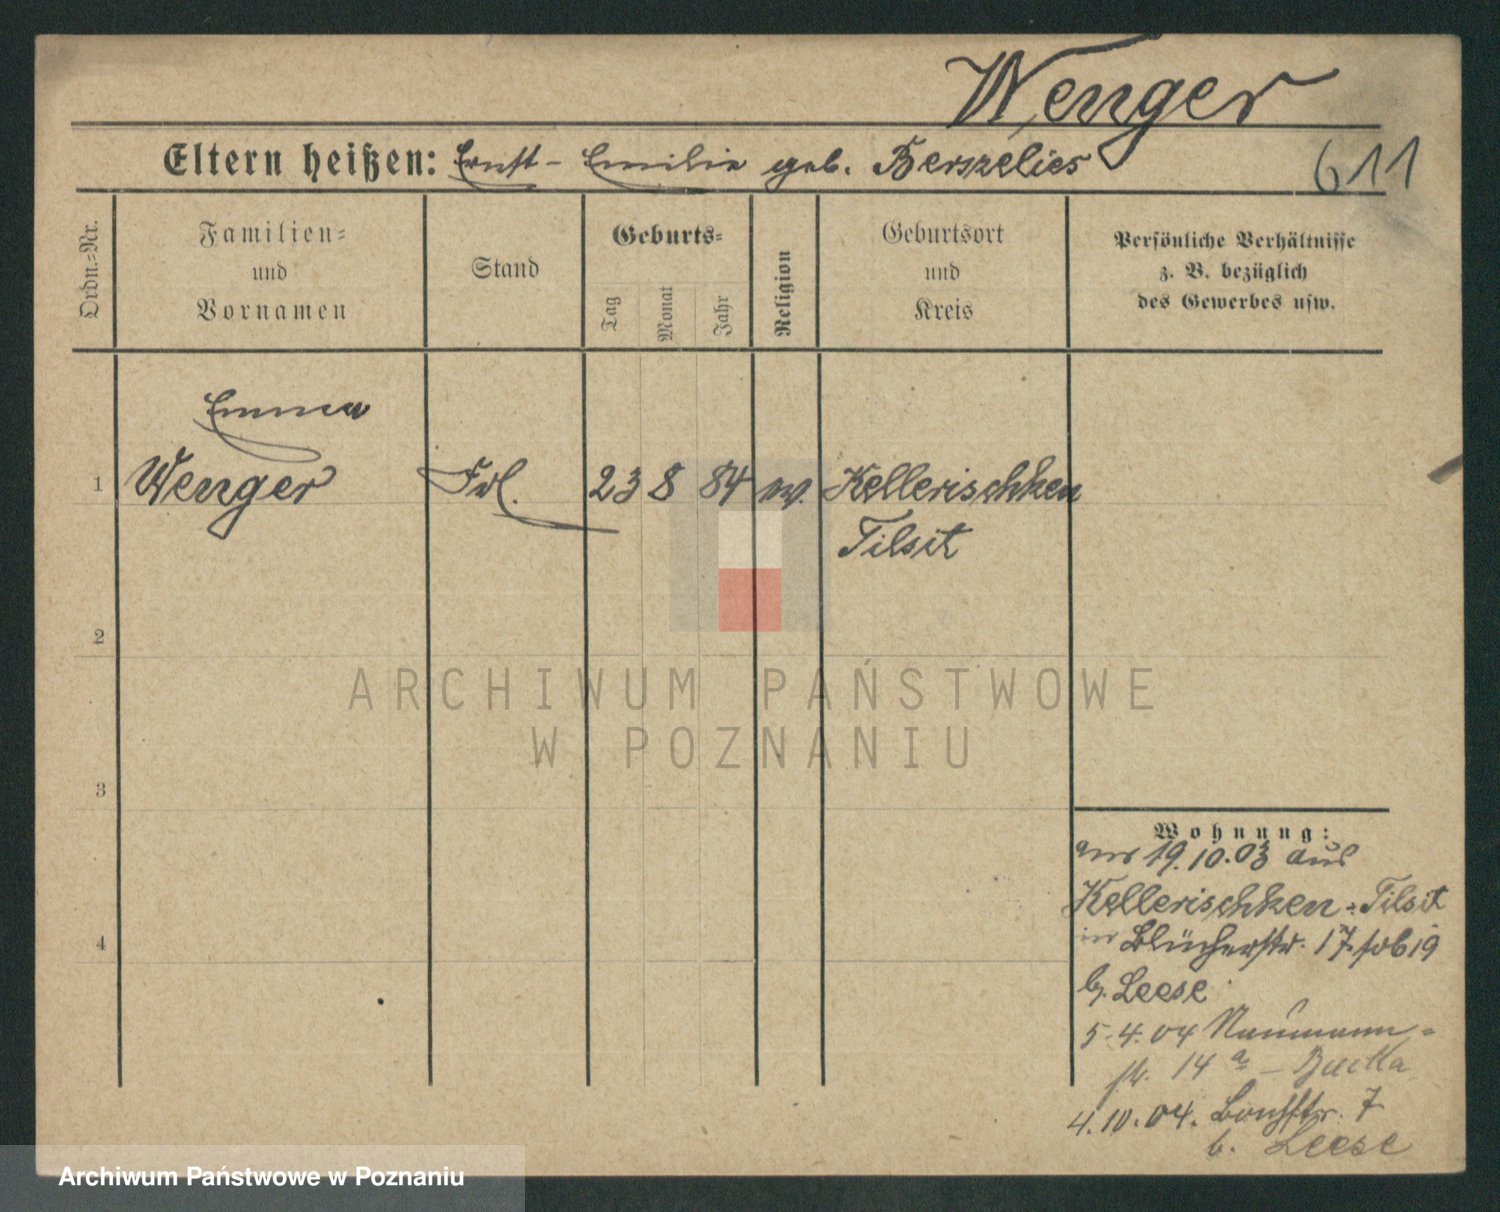 Wenger
Eltern heißen: Ernst - Emilie geb. Berszelies
611
Ordn.=Nr.
Familien=
und
Vornamen
Stand
Geburts=
Tag
Monat
Jahr
Religion
Geburtsort
und
Kreis
Persönliche Verhältnisse
z. B. bezüglich
des Gewerbes usw.
Emma
1 Wenger Frl. 23 8 84 ev. Kellerischken
Tilsit
2
ARCHIWUM PAŃSTWOWE
W POZNANIU
3
Wohnung:
am 19.10.03 aus
Kellerischken - Tilsit
in Blücherstr. 17
b. Leese
5.4.04 Naumann-
str. 14a -
4.10.04. 7
b. Leese
4
Archiwum Państwowe w Poznaniu